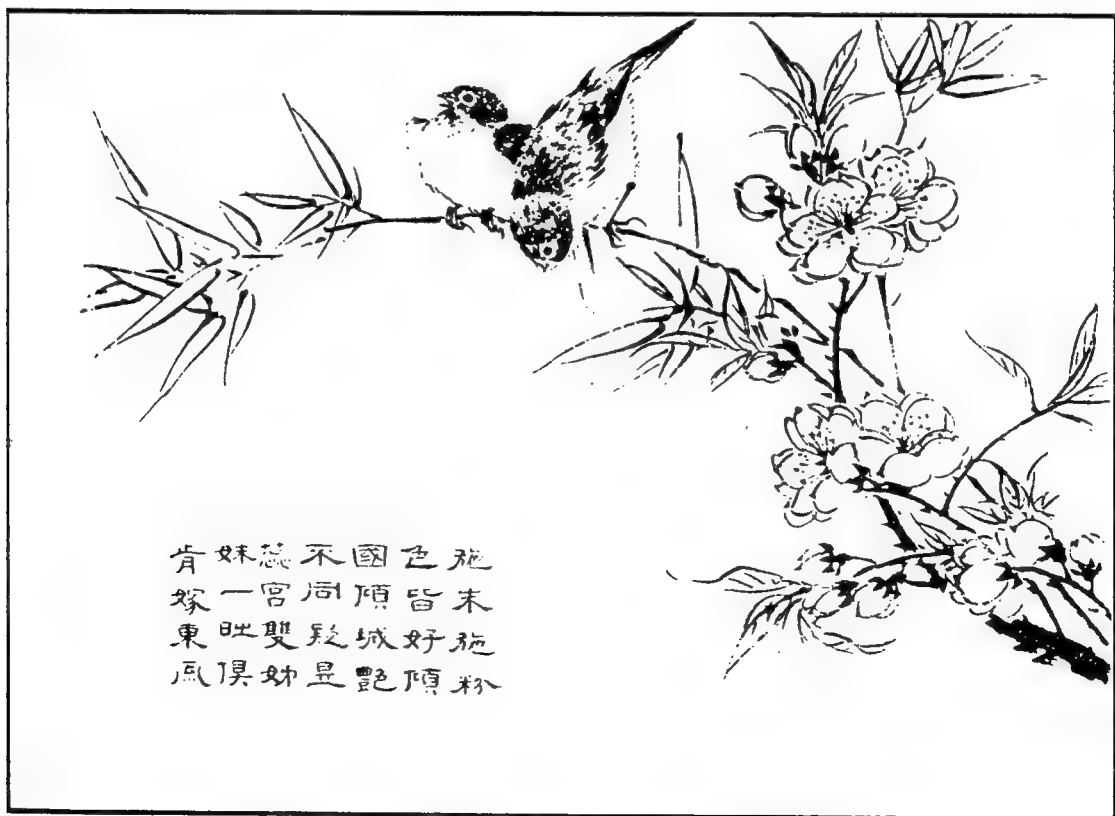 施朱施粉
色皆好傾
國傾城艷
不同疑是
蕊宮雙姊
妹一時俱
肯嫁東風